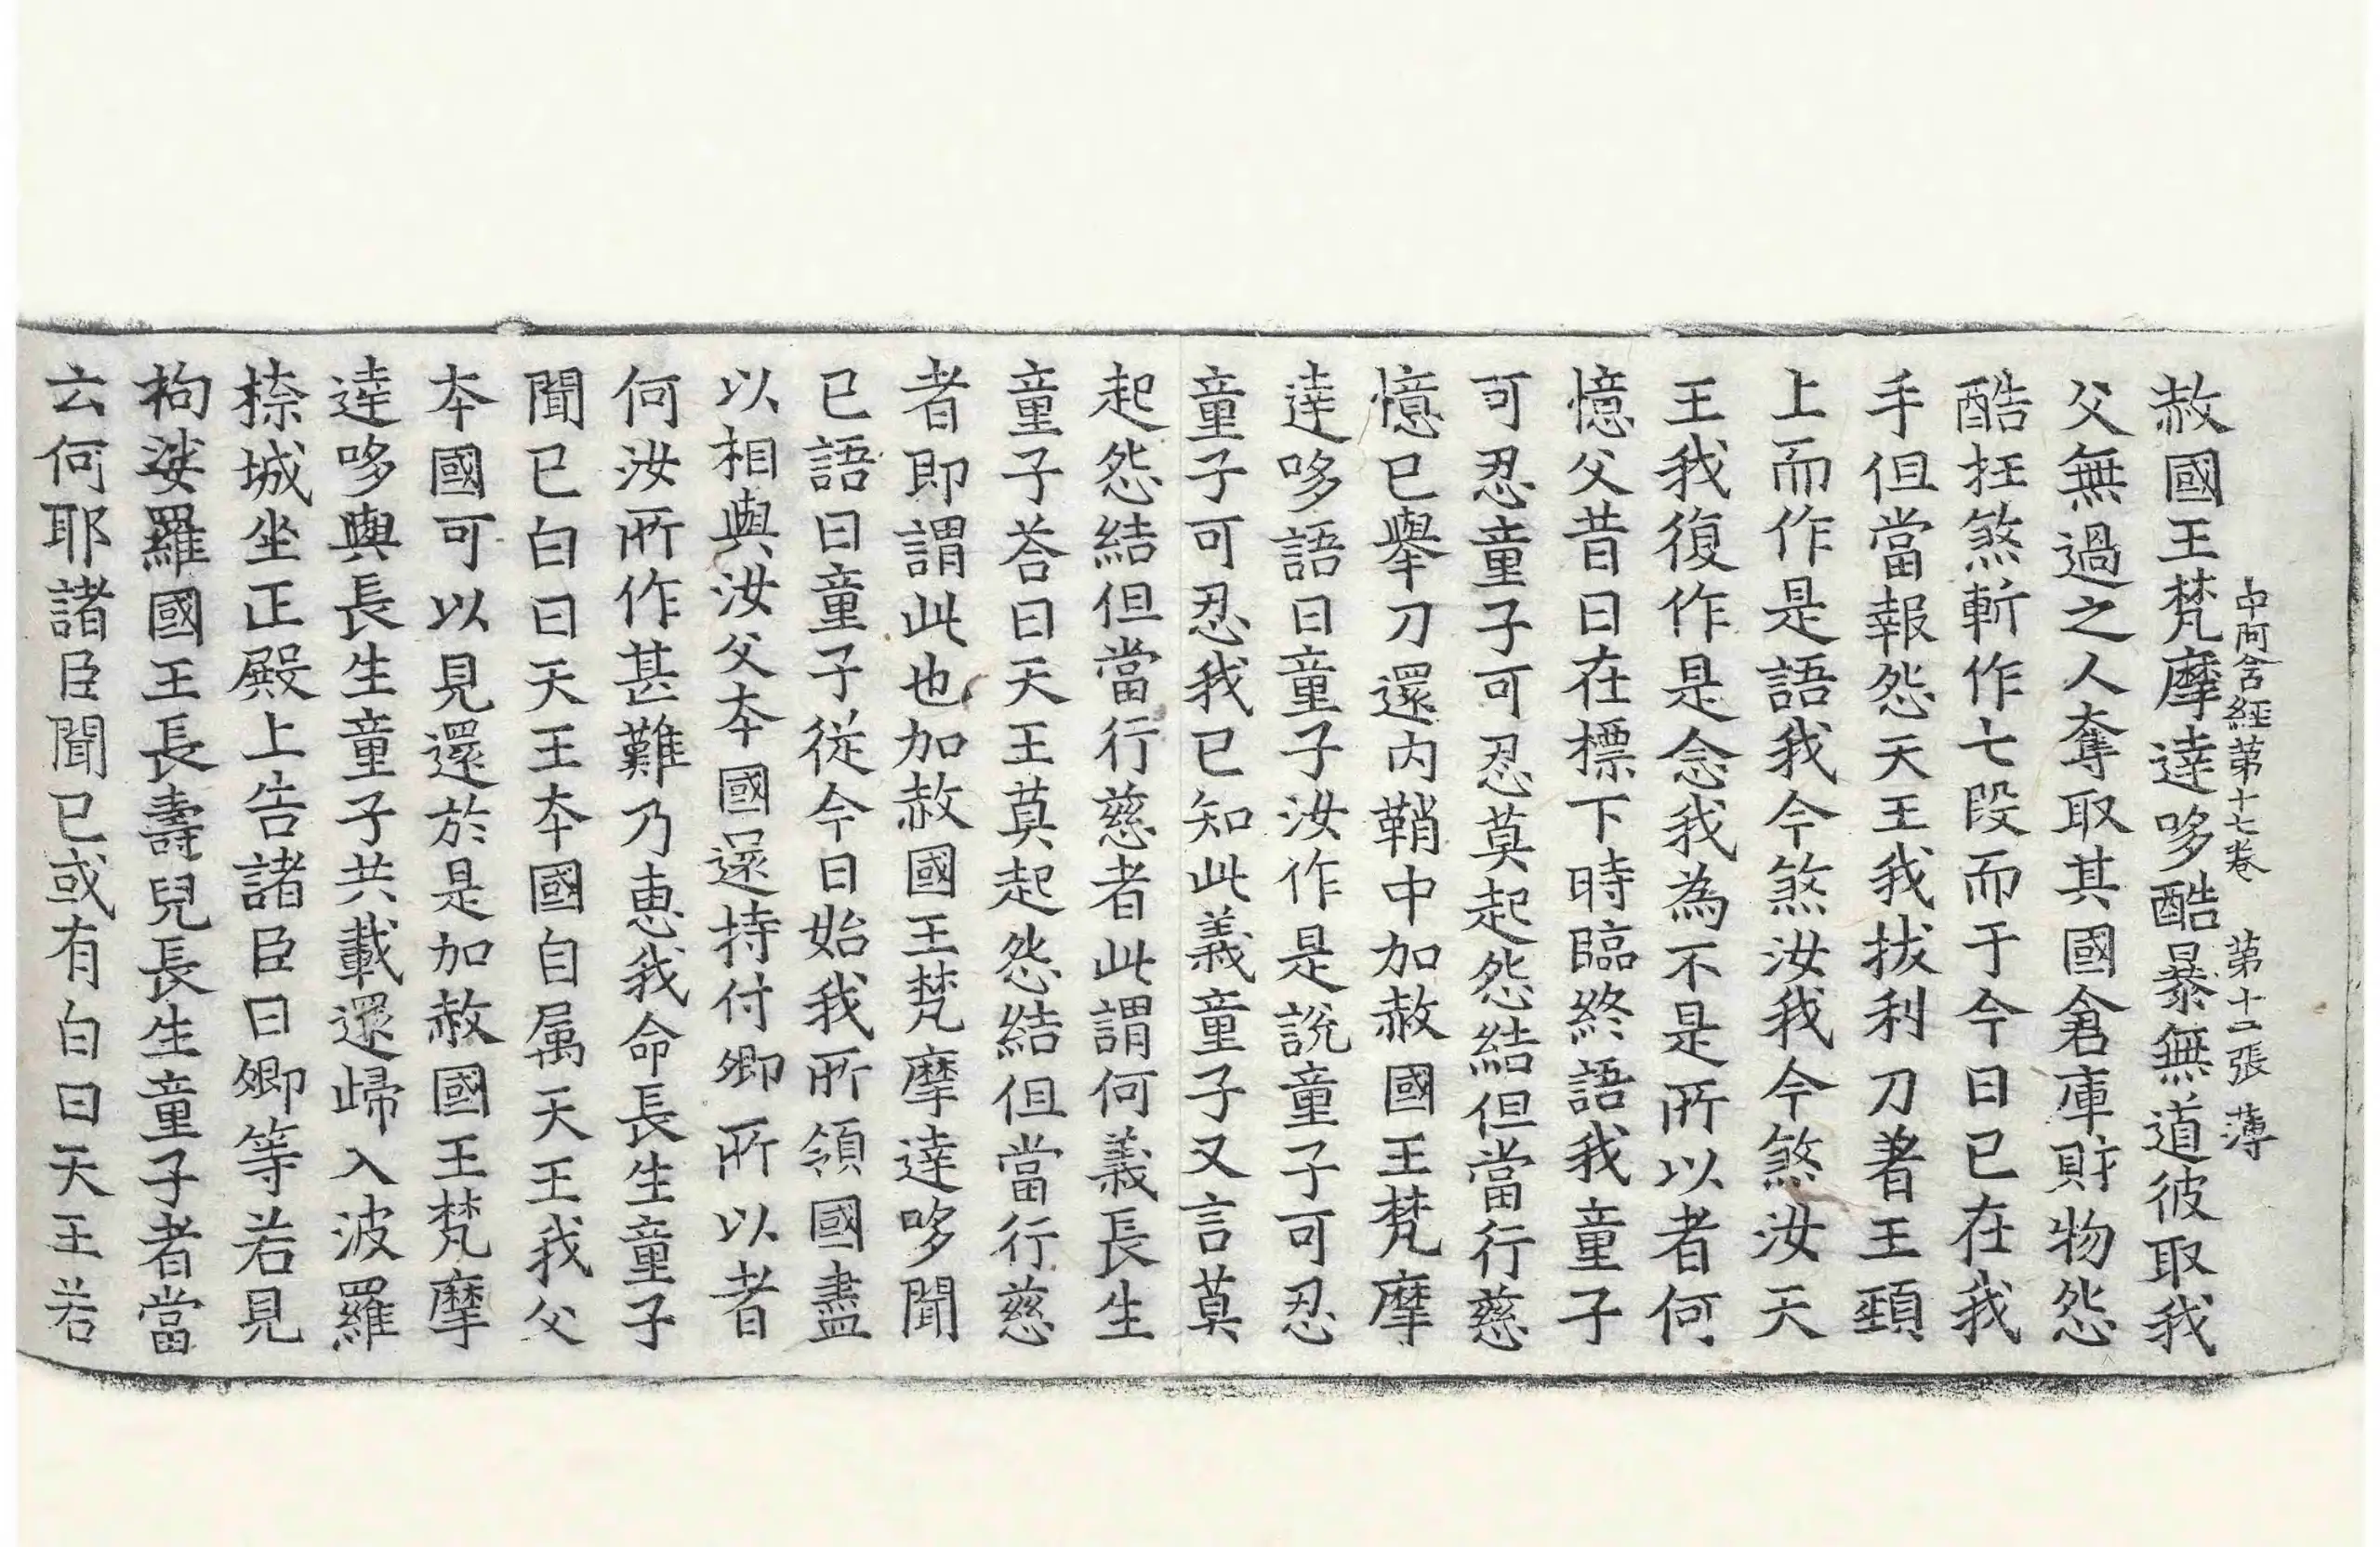 中阿含經第十七卷 第十二張 薄
赦國王梵摩達哆酷暴無道彼取我
父無過之人奪取其國倉庫財物怨
酷抂煞斬作七段而于今日已在我
手但當報怨天王我拔利刀著王頸
上而作是語我今煞汝我今煞汝天
王我復作是念我為不是所以者何
憶父昔日在標下時臨終語我童子
可忍童子可忍莫起怨結但當行慈
憶已舉刀還內鞘中加赦國王梵摩
達哆語曰童子汝作是說童子可忍
童子可忍我已知此義童子又言莫
起怨結但當行慈者此謂何義長生
童子荅曰天王莫起怨結但當行慈
者即謂此也加赦國王梵摩達哆聞
已語曰童子從今日始我所領國盡
以相與汝父本國還持付卿所以者
何汝所作甚難乃恵我命長生童子
聞已白曰天王本國自属天王我父
本國可以見還於是加赦國王梵摩
達哆與長生童子共載還歸入波羅
㮈城坐正殿上告諸臣曰卿等若見
拘娑羅國王長壽兒長生童子者當
云何耶諸臣聞已或有白曰天王若